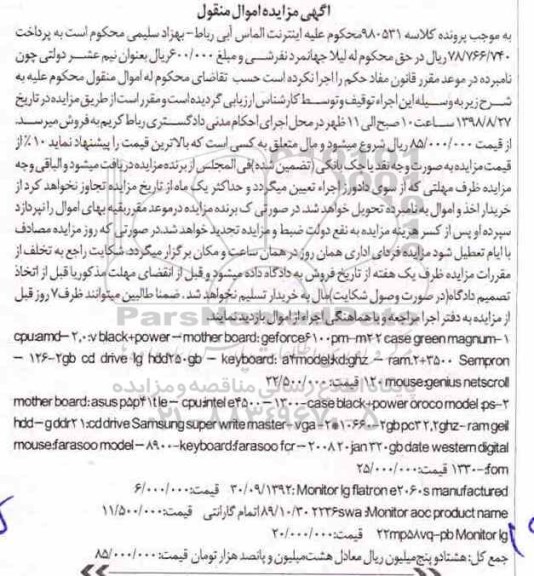 آگهی مزایده اموال منقول
به موجب پرونده کلاسه ۹۸۰۵۳۱محکوم علیه اینترنت الماس آبی رباط- بهزاد سلیمی محکوم است به پرداخت
۷۸/۷۶۶/۷۴۰ ریال در حق محکوم له لیلا جهانمرد نفرشی و مبلغ ۶۰۰/۰۰۰ریال بعنوان نیم عشر دولتی چون
نامبرده در موعد مقرر قانون مفاد حکم را اجرا نکرده است حسب تقاضای محکوم له اموال منقول محکوم علیه به
شرح زیر به وسیله این اجراء توقیف و توسط کارشناس ارزیابی گردیده است و مقرر است از طریق مزایده در تاریخ
۱۳۹۸/۸/۲۷ ساعت ۱۰ صبح الی ۱۱ ظهر در محل اجرای احکام مدنی دادگستری رباط کریم به فروش میرسد.
از قیمت ۸۵/۰۰۰/۰۰۰ ریال شروع میشود و مال متعلق به کسی است که بالاترین قیمت را پیشنهاد نماید ۱۰٪ از
قیمت مزایده به صورت وجه نقد یا چک بانکی (تضمین شده)فی المجلس از برنده مزایده دریافت میشود و الباقی وجه
مزایده ظرف مهلتی که از سوی دادورز اجراء تعیین میگردد و حداکثر یک ماه از تاریخ مزایده تجاوز نخواهد کرد از
خریدار اخذ و اموال به نامبرده تحویل خواهد شد. در صورتی ک برنده مزایده در موعد مقرر بقیه بهای اموال را نپردازد
سپرده او پس از کسر هزینه مزایده به نفع دولت ضبط و مزایده تجدید خواهد شد.در صورتی که روز مزایده مصادف
با ایام تعطیل شود مزایده فردای اداری همان روز در همان ساعت و مکان برگزار میگردد. شکایت راجع به تخلف از
مقررات مزایده ظرف یک هفته از تاریخ فروش به دادگاه داده میشود و قبل از انقضای مهلت مذکور یا قبل از اتخاذ
تصمیم دادگاه(در صورت وصول شکایت)مال به خریدار تسلیم نخواهد شد. ضمنا طالبین میتوانند ظرف ۷ روز قبل
از مزایده به دفتر اجرا مراجعه و با هماهنگی اجراء از اموال بازدید نمایند.
cpu:amd- ۲٫۰:v black+power- mother board: geforce۶۱۰۰pm-m۲۴۲ case green magnum-۱
- ۱۲۶-۲gb cd drive lg hdd۲۵۰gb - keyboard: a۴model:kd:ghz.- ram:۲+۳۵۰۰ Sempron
۱۲۰mouse:genius netscroll قیمت: ۲۲/۵۰۰/۰۰۰
mother board: asus p۵p۴۱tle- cpu:intel e۴۵۰۰-۱۳۰۰-case black+power oroco model :ps-۲
hdd-g ddr۲ ۱:cd drive Samsung super write master- vga-۲*۱۰۶۶-۲gb pc۳۲,۲ghz- ram geil
mouse:farasoo model- ۸۹۰۰-keyboard:farasoo fcr-۲۰۰۸ ۲۰jan ۳۲۰gb date western digital
:fom-۱۳۳۰ قیمت: ۲۵/۰۰۰/۰۰۰
۳۰/۰۹/۱۳۹۲: Monitor lg flatron e۲۰۶۰s manufactured قیمت: ۶/۰۰۰/۰۰۰
۸۹/۱۰/۳۰ ۲۲۳۶swa :Monitor aoc product name اتمام گارانتی قیمت: ۱۱/۵۰۰/۰۰۰
۲۲mp۵۸vq-pb Monitor lg قیمت: ۲۰/۰۰۰/۰۰۰
جمع کل: هشتاد و پنج میلیون ریال معادل هشت میلیون و پانصد هزار تومان قیمت: ۸۵/۰۰۰/۰۰۰